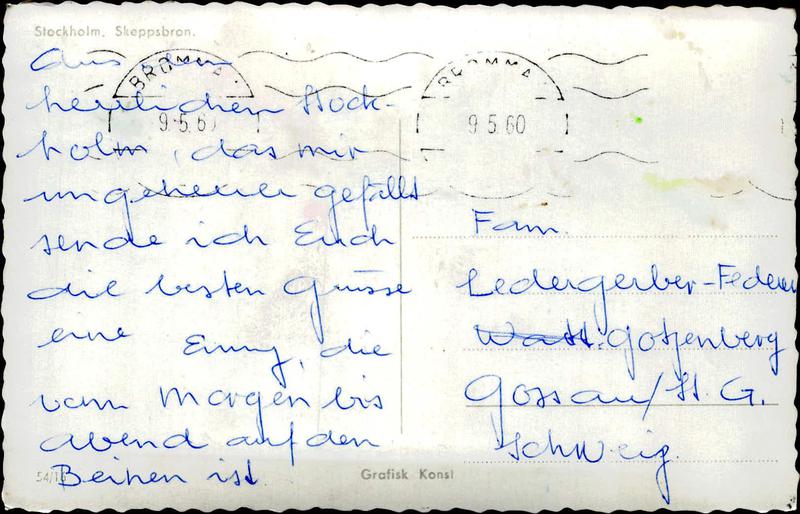 Stockholm. Skeppsbron.
BROMMA
9.5.6
BROMMA
9 5 60
Aus dem
herrlichen Stock-
holm, das mir
ungeheuer gefällt
sende ich Euch
die besten Grüsse
eine Emmy, die
vom Morgen bis
abend auf den
Beinen ist.
54/1
Grafisk Konst
Fam.
Ledergerber-Federer
Watt. Gotzenberg
Gossau/St. G.
Schweiz.